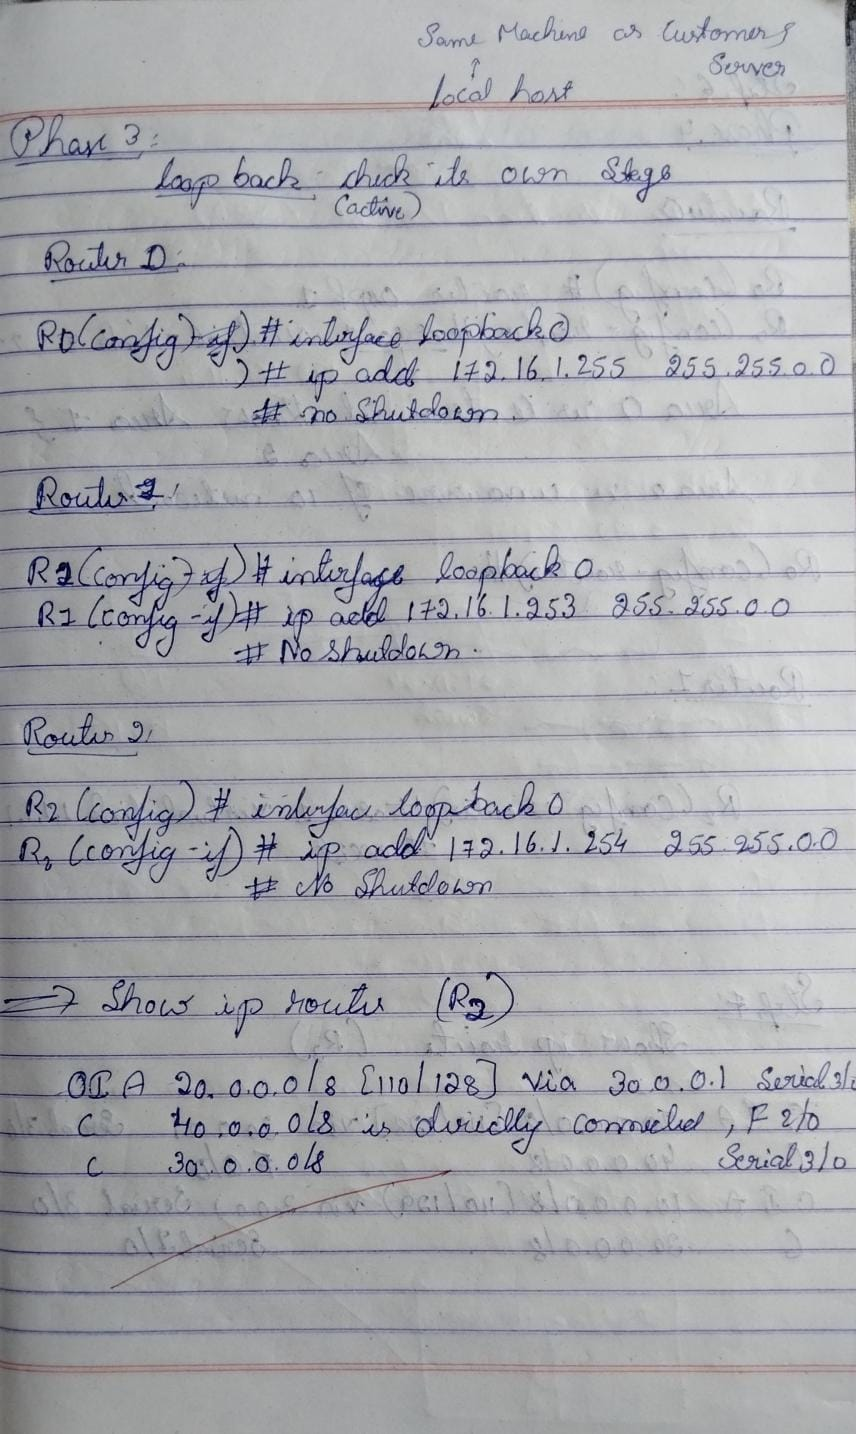 Same Machine as Customers
Server
↑
local host
Phase 3:
loop back: check its own Stage
(active)
Router 0:
R0(config)# interface loopback 0
)# ip add 172.16.1.255 255.255.0.0
# no Shutdown.
Router 1:
R1(config)# interface loopback 0
R1 (config-if)# ip add 172.16.1.253 255.255.0.0
# No Shutdown.
Router 2,
R2 (config) # interfac loopback 0
R2 (config-if) # ip add 172.16.1.254 255.255.0.0
# No Shutdown
=> Show ip route (R2)
OIA 20.0.0.0/8 [110/128] via 30.0.0.1 Serial 3/
C 40.0.0.0/8 is directly connected, F 2/0
C 30.0.0.0/8 Serial 3/0